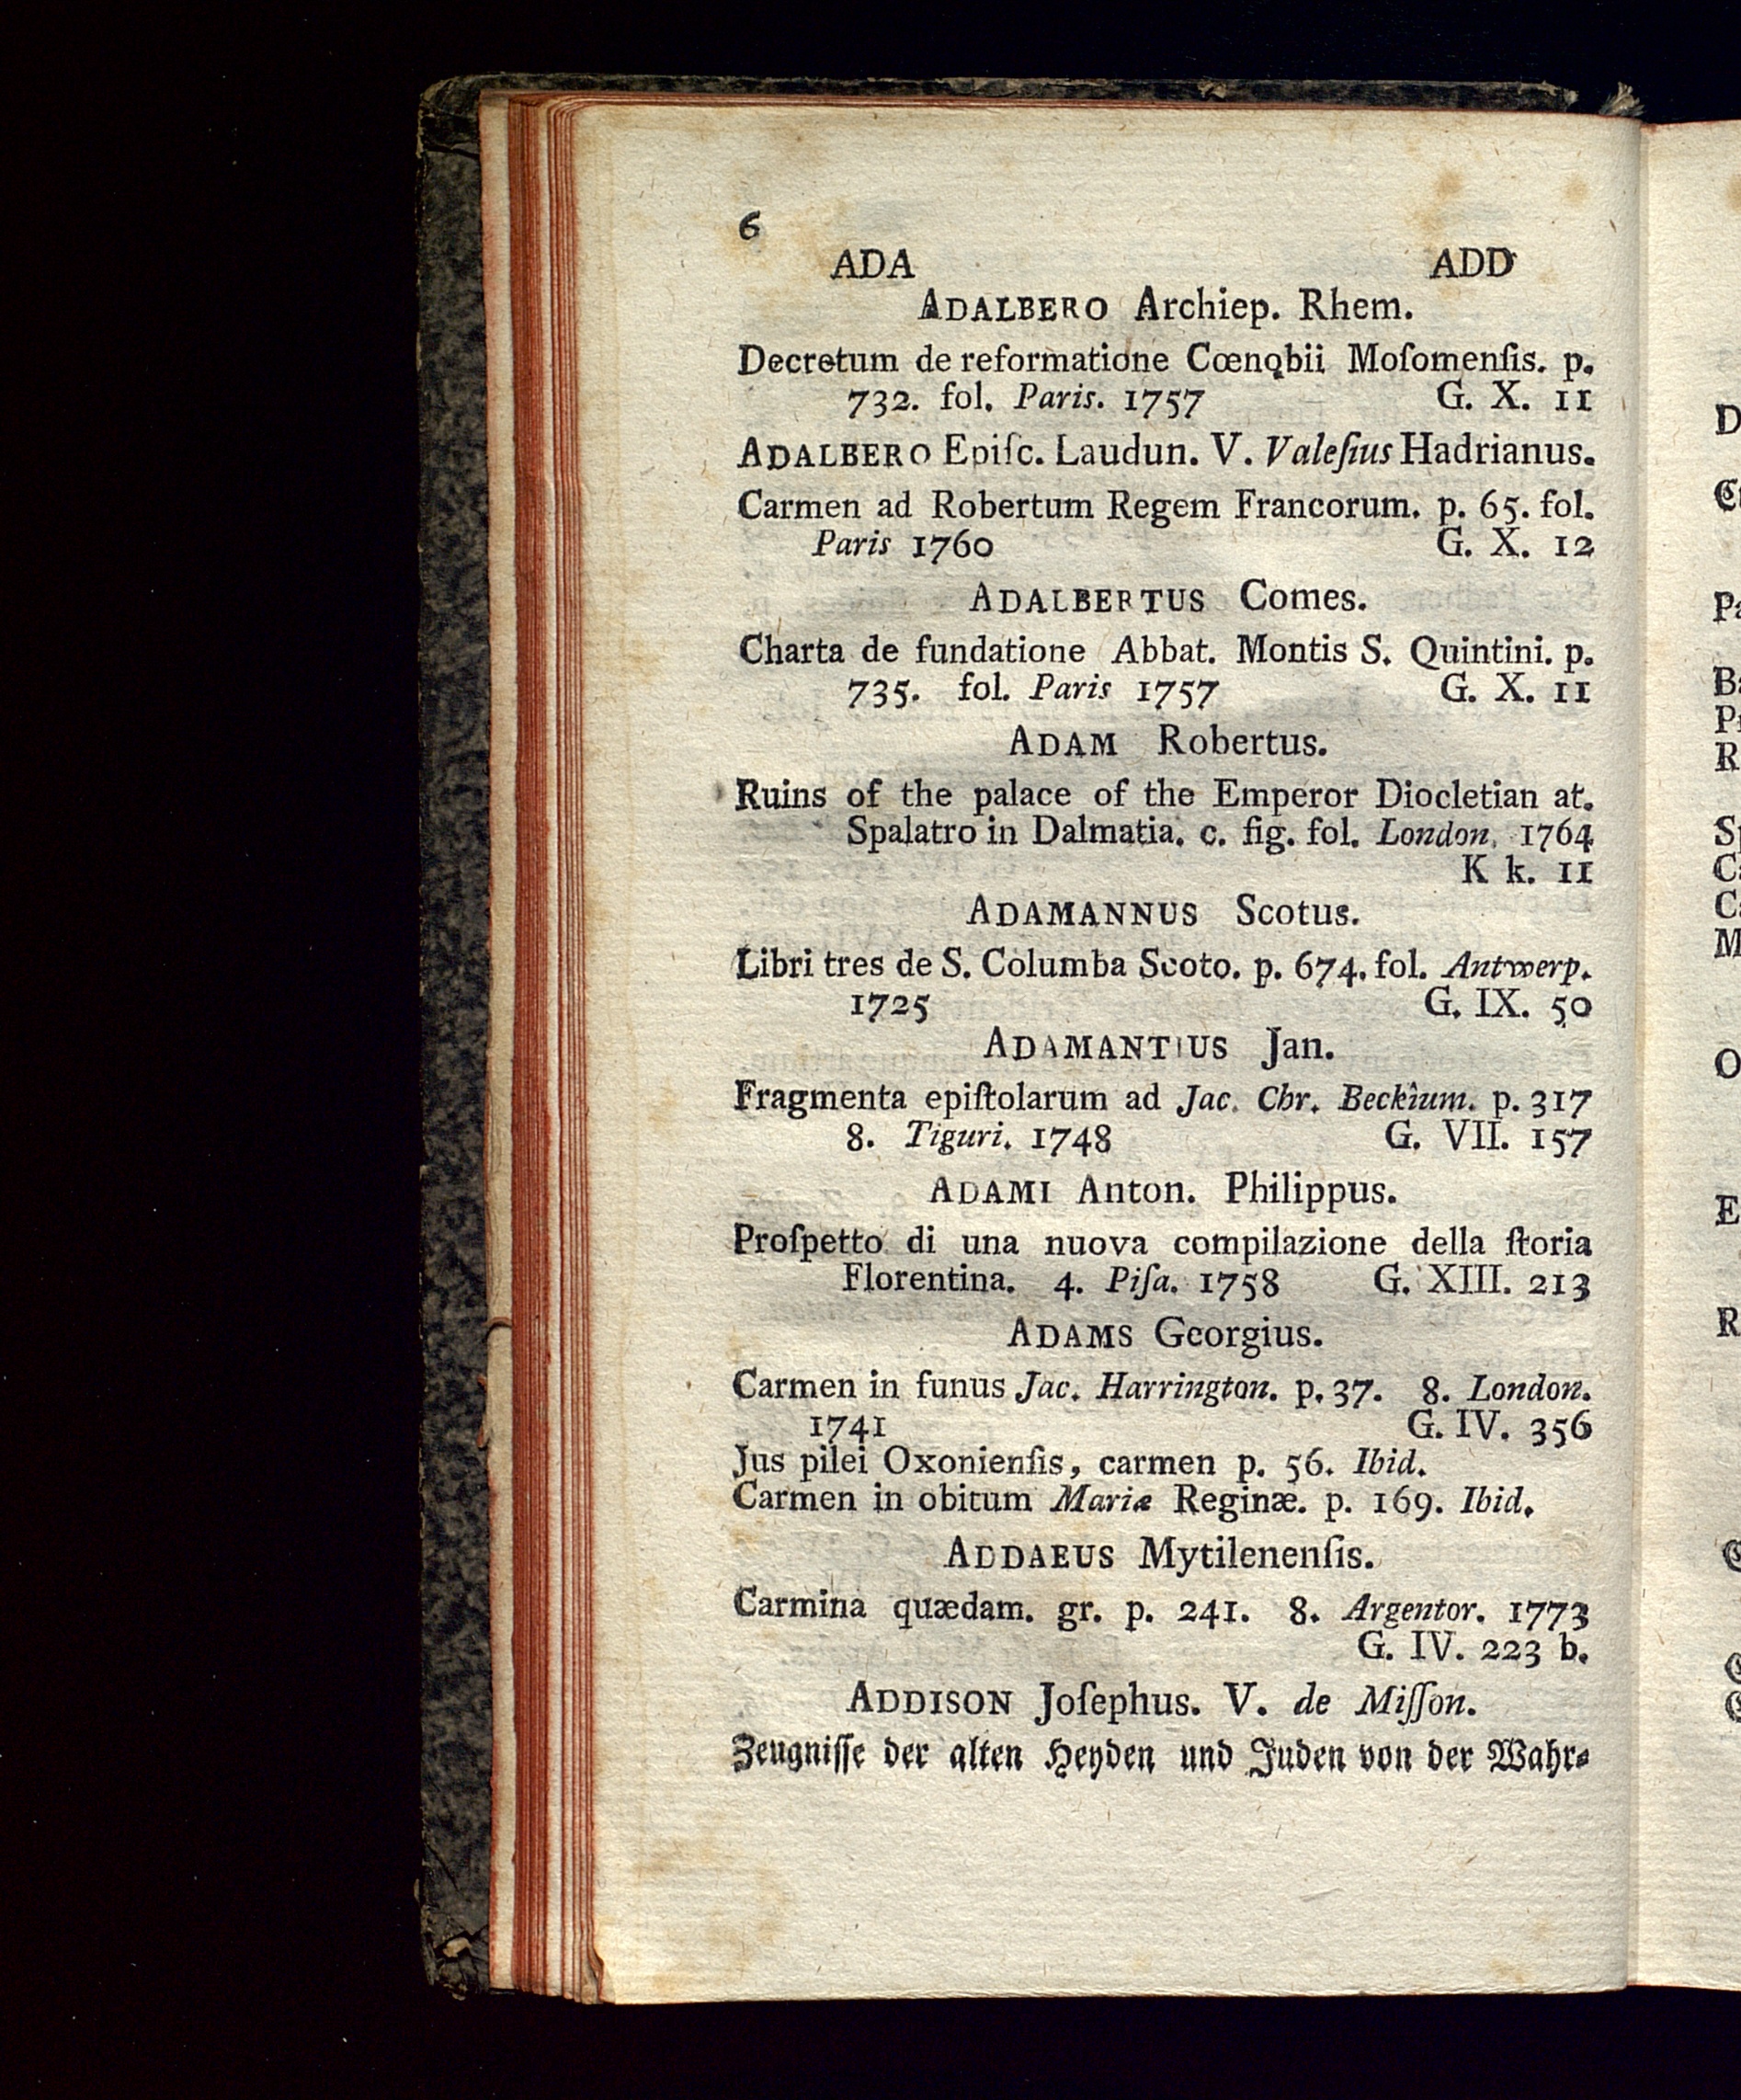 6
ADA ADD
ADALBERO Archiep. Rhem.
Decretum de reformatione Cœnobii Moſomenſis. p.
732. fol. Paris. 1757 G. X. 11
ADALBERO Epiſc. Laudun. V. Valeſius Hadrianus.
Carmen ad Robertum Regem Francorum. p. 65. fol.
Paris 1760 G. X. 12
ADALBERTUS Comes.
Charta de fundatione Abbat. Montis S. Quintini. p.
735. fol. Paris 1757 G. X. 11
ADAM Robertus.
Ruins of the palace of the Emperor Diocletian at.
Spalatro in Dalmatia. c. fig. fol. London. 1764
K k. 11
ADAMANNUS Scotus.
Libri tres de S. Columba Scoto. p. 674. fol. Antwerp.
1725 G. IX. 50
ADAMANTIUS Jan.
Fragmenta epiſtolarum ad Jac. Chr. Beckium. p. 317
8. Tiguri. 1748 G. VII. 157
ADAMI Anton. Philippus.
Proſpetto di una nuova compilazione della ſtoria
Florentina. 4. Piſa. 1758 G. XIII. 213
ADAMS Georgius.
Carmen in funus Jac. Harrington. p. 37. 8. London.
1741 G. IV. 356
Jus pilei Oxonienſis, carmen p. 56. Ibid.
Carmen in obitum Mariæ Reginæ. p. 169. Ibid.
ADDAEUS Mytilenenſis.
Carmina quædam. gr. p. 241. 8. Argentor. 1773
G. IV. 223 b.
ADDISON Joſephus. V. de Miſſon.
Zeugniſſe der alten Heyden und Juden von der Wahr⸗